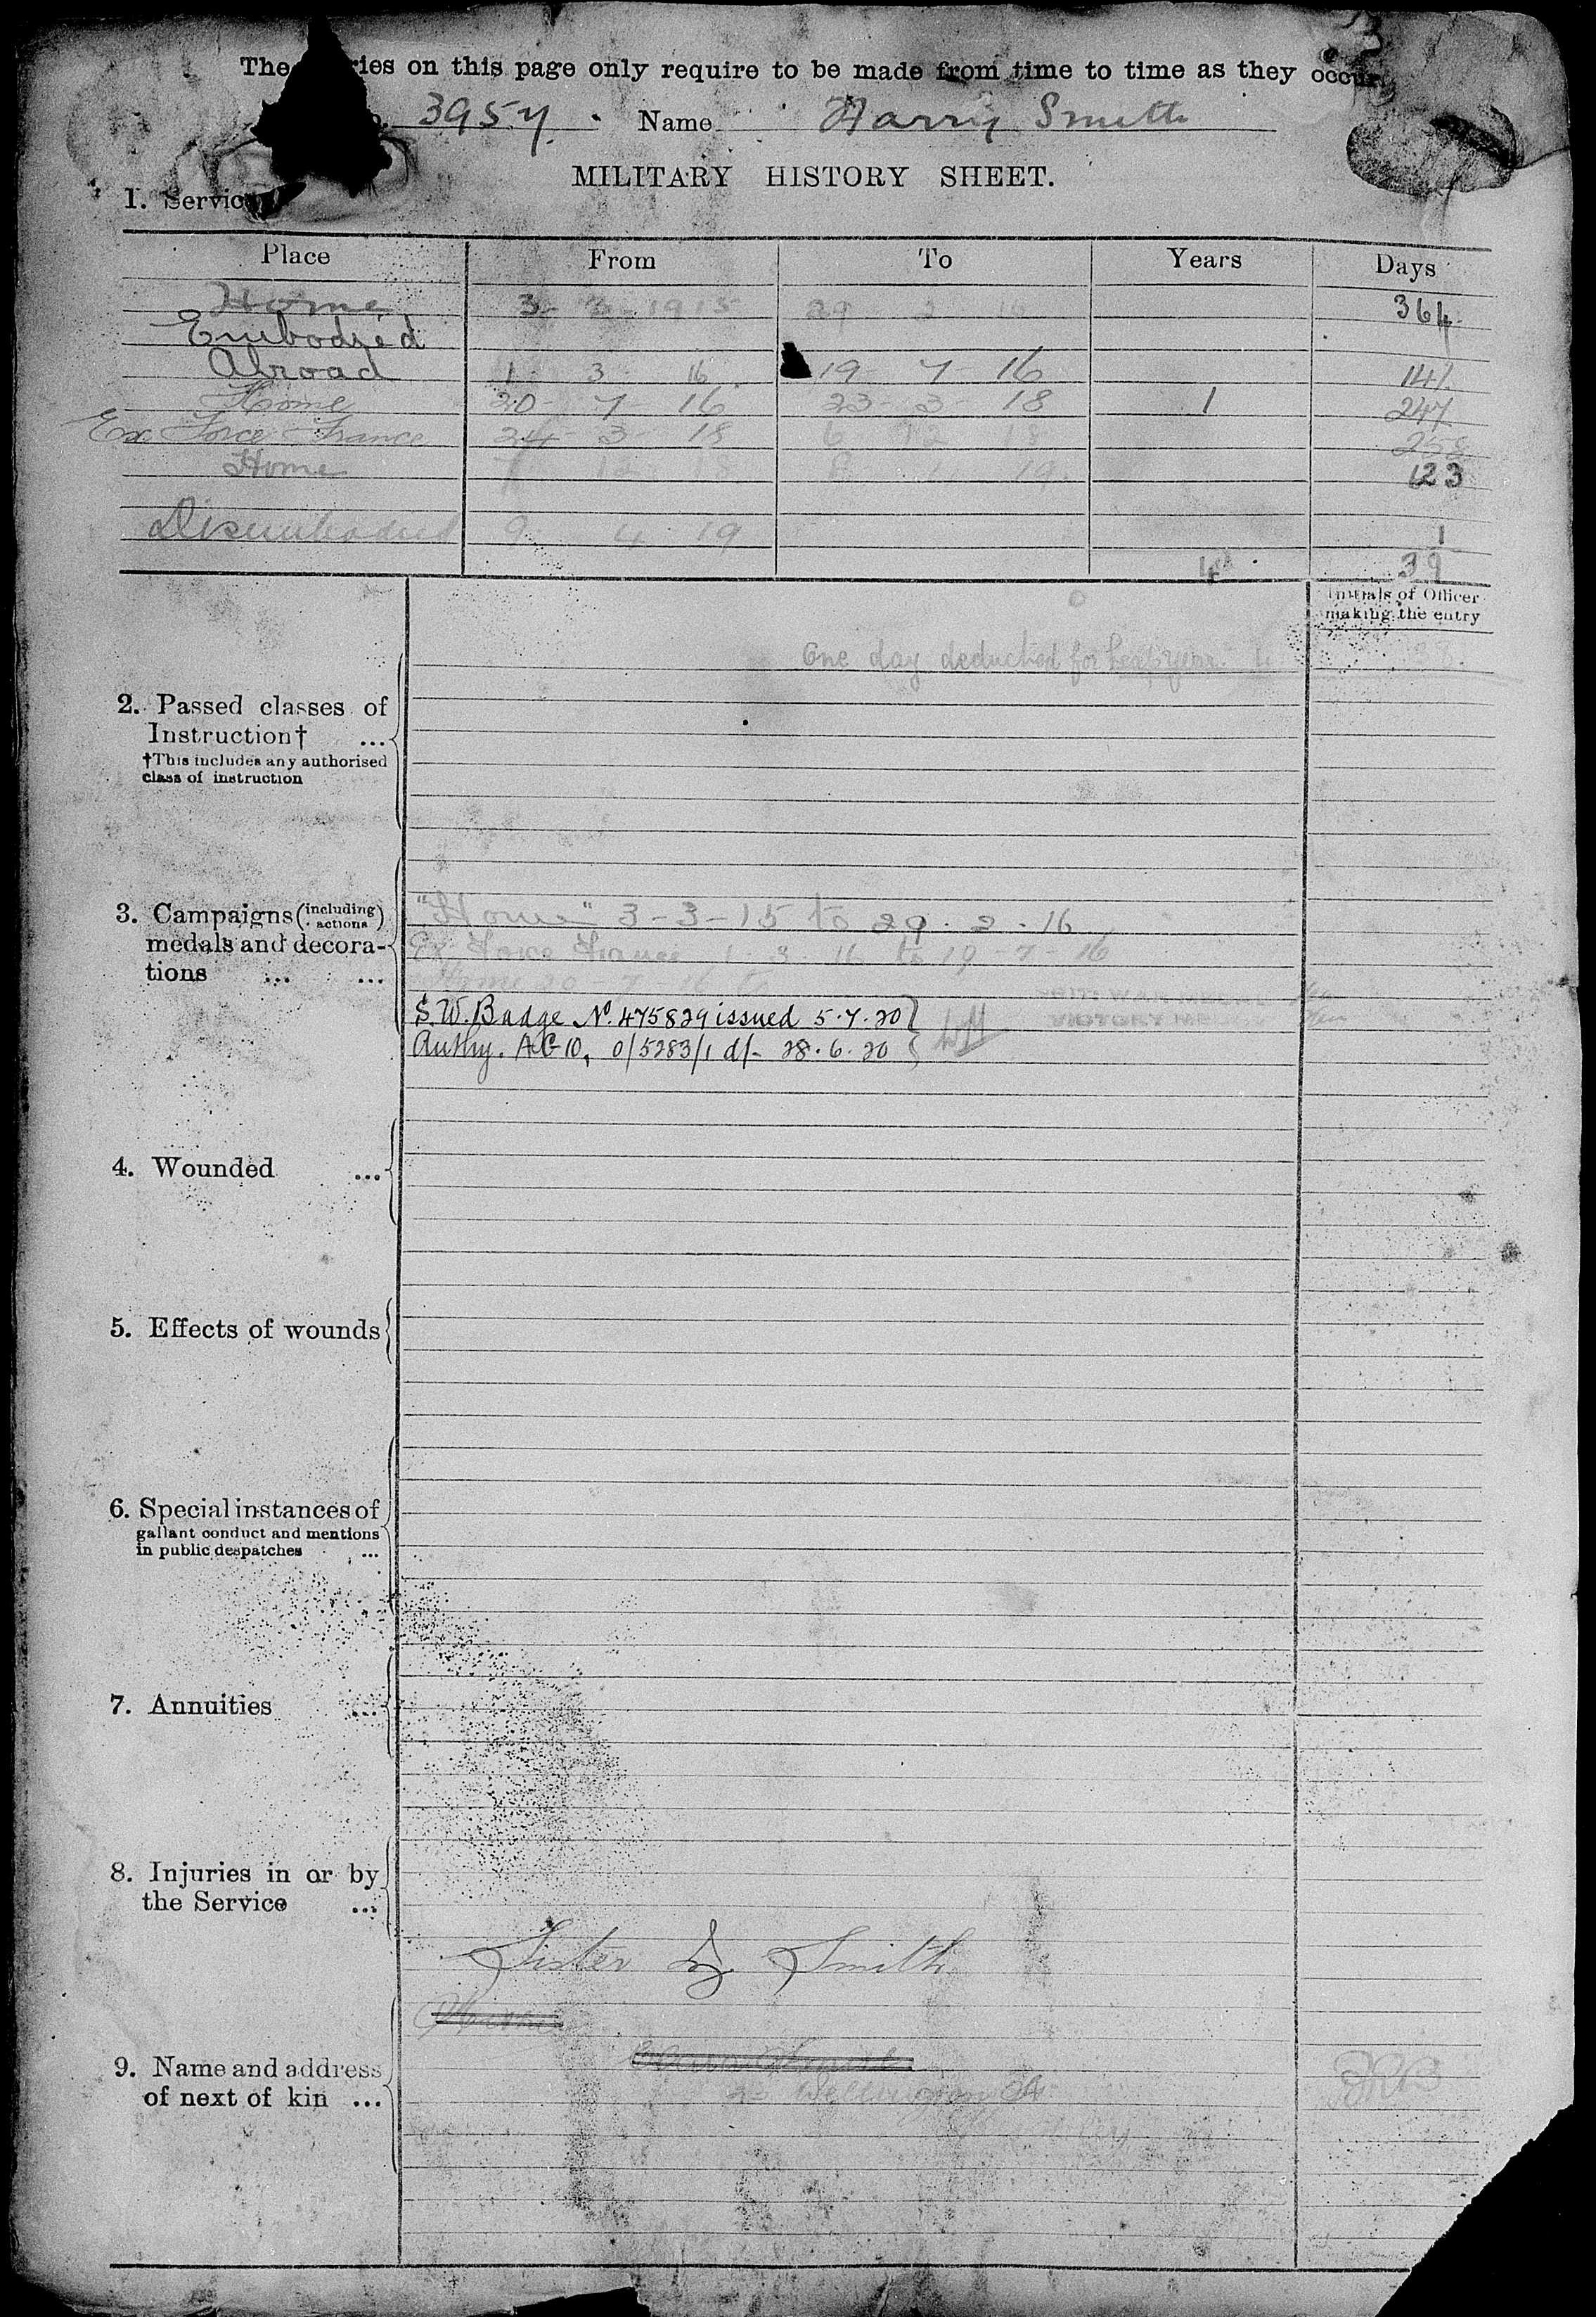 The ries on this page only require to be made from time to time as they occur.
o. 3957. Name Harry Smith
MILITARY HISTORY SHEET.
1. Servic
Place From To Years Days
Home 3- 3- 1915 29 2 16 364
Embodied
Abroad 1 3 16 19 7 16 141
Home 20- 7 16 23- 3- 18 1 247
Ex Force France 24 3 18 6 12 18 258
Home 7 12 18 8 19 123
Disembodied 9 4 19 1
4 39
Initials of Officer
making the entry
One day deducted for Leap year 1 38
2. Passed classes of
Instruction† ...
†This includes any authorised
class of instruction
3. Campaigns (including actions)
medals and decora-
tions ... ...
"Home" 3-3-15 to 29. 2. 16
Ex Force France 1 3 16 to 19-7-16
Home 20 7 16 to
VICTORY ME
S.W. Badge No. 475829 issued 5.7.20
Authy. AG 10, 0/5283/1 d/- 28.6.20
4. Wounded ...
5. Effects of wounds
6. Special instances of
gallant conduct and mentions
in public despatches ...
7. Annuities ...
8. Injuries in or by
the Service ...
Sister Smith
9. Name and address
of next of kin ...
Wellington St